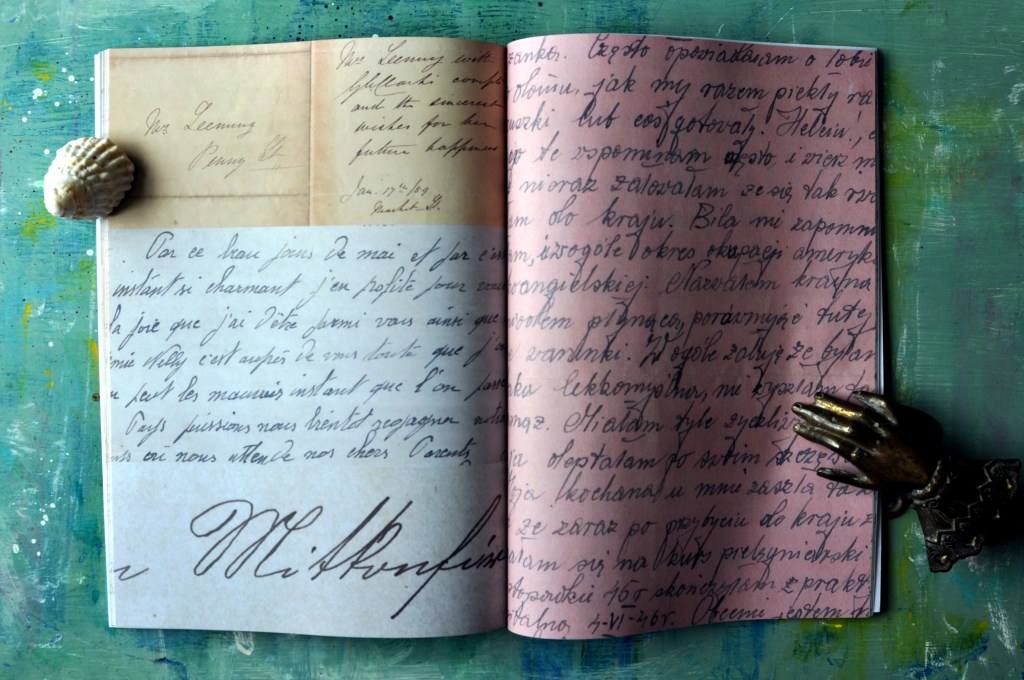 Mrs Leeming
Penny St.
Mrs Leeming with
and the sincerest
wishes for her
future happiness
Jan. 17th /59
Par ce beau jour de mai et par c'est
instant si charmant j'en profite pour vous
la joie que j'ai d'être parmi vous ainsi que
mie Willy c'est auprès de vous toute que j'
peut les mauvais instant que l'on passe
Pays puissions nous bientôt regagner notre
où nous attende nos chers Parents
Mittonfin
zanka. Często opowiadałam o tobie
domu, jak my razem piekły
uszki lub coś gotowały. Helein!,
te wspominam często i wierz m
nieraz żałowałam że się tak
am do kraju. Bila mi zapomn
am, wogóle okres okupacji ameryk
angielskiej. Nazwałam kraina
miodem płynącą, porównując tutej
warunki. Wogóle żałuję że byłam
ka lekkomyślna, nie
raz. Miałam tyle życzli
a deptałam po swoim szczęś
ja kochana u mnie zaszła
że zaraz po przybyciu do kraju z
łam się na kurs pielęgniarski
46r skończyłam z prakt
4-VI-46r. Obecnie jestem